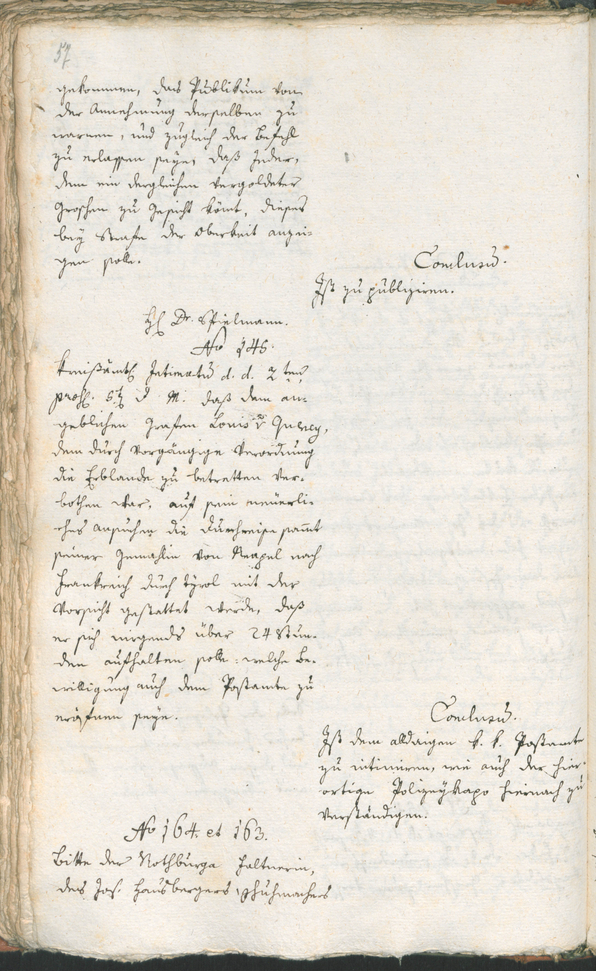 57
gekommen, das Publikum von
der Annehmung derselben zu
warnen, und zugleich der Befehl
zu erlassen seye, daß Jeder,
dem ein dergleichen vergoldeter
Groschen zu Gesicht kömt, dieses
bey Strafe der Obrkeit anzei-
gen solle.
Conclusũ.
Ist zu publiziren.
H Dr. Spielmann.
No 145.
Kreißämtl Intimatũ d. d. 2 ten
pres. 5t d. M. daß dem an-
geblichen Grafen Louis v
dem durch Vorgängige Verordnung
die Erblande zu betretten ver-
bothen war, auf sein neüerli-
ches ansuchen die Durchreise samt
seiner Gemahlin von Neapel nach
Frankreich durch Tyrol mit der
Vorsicht gestattet werde, daß
er sich nirgends über 24 Stun-
den aufhalten solle: welche Be-
willigung auch dem Postamte zu
eröfnen seye.
Conclusũ.
Ist dem alldaigen k. k. Postamte
zu intimiren, wie auch der hier-
ortige Polizeykapo hiernach zu
verständigen.
No 164 et 163.
Bitte der Nothburga Haltnerin,
des Jos. Hausbergers Schuhmachers